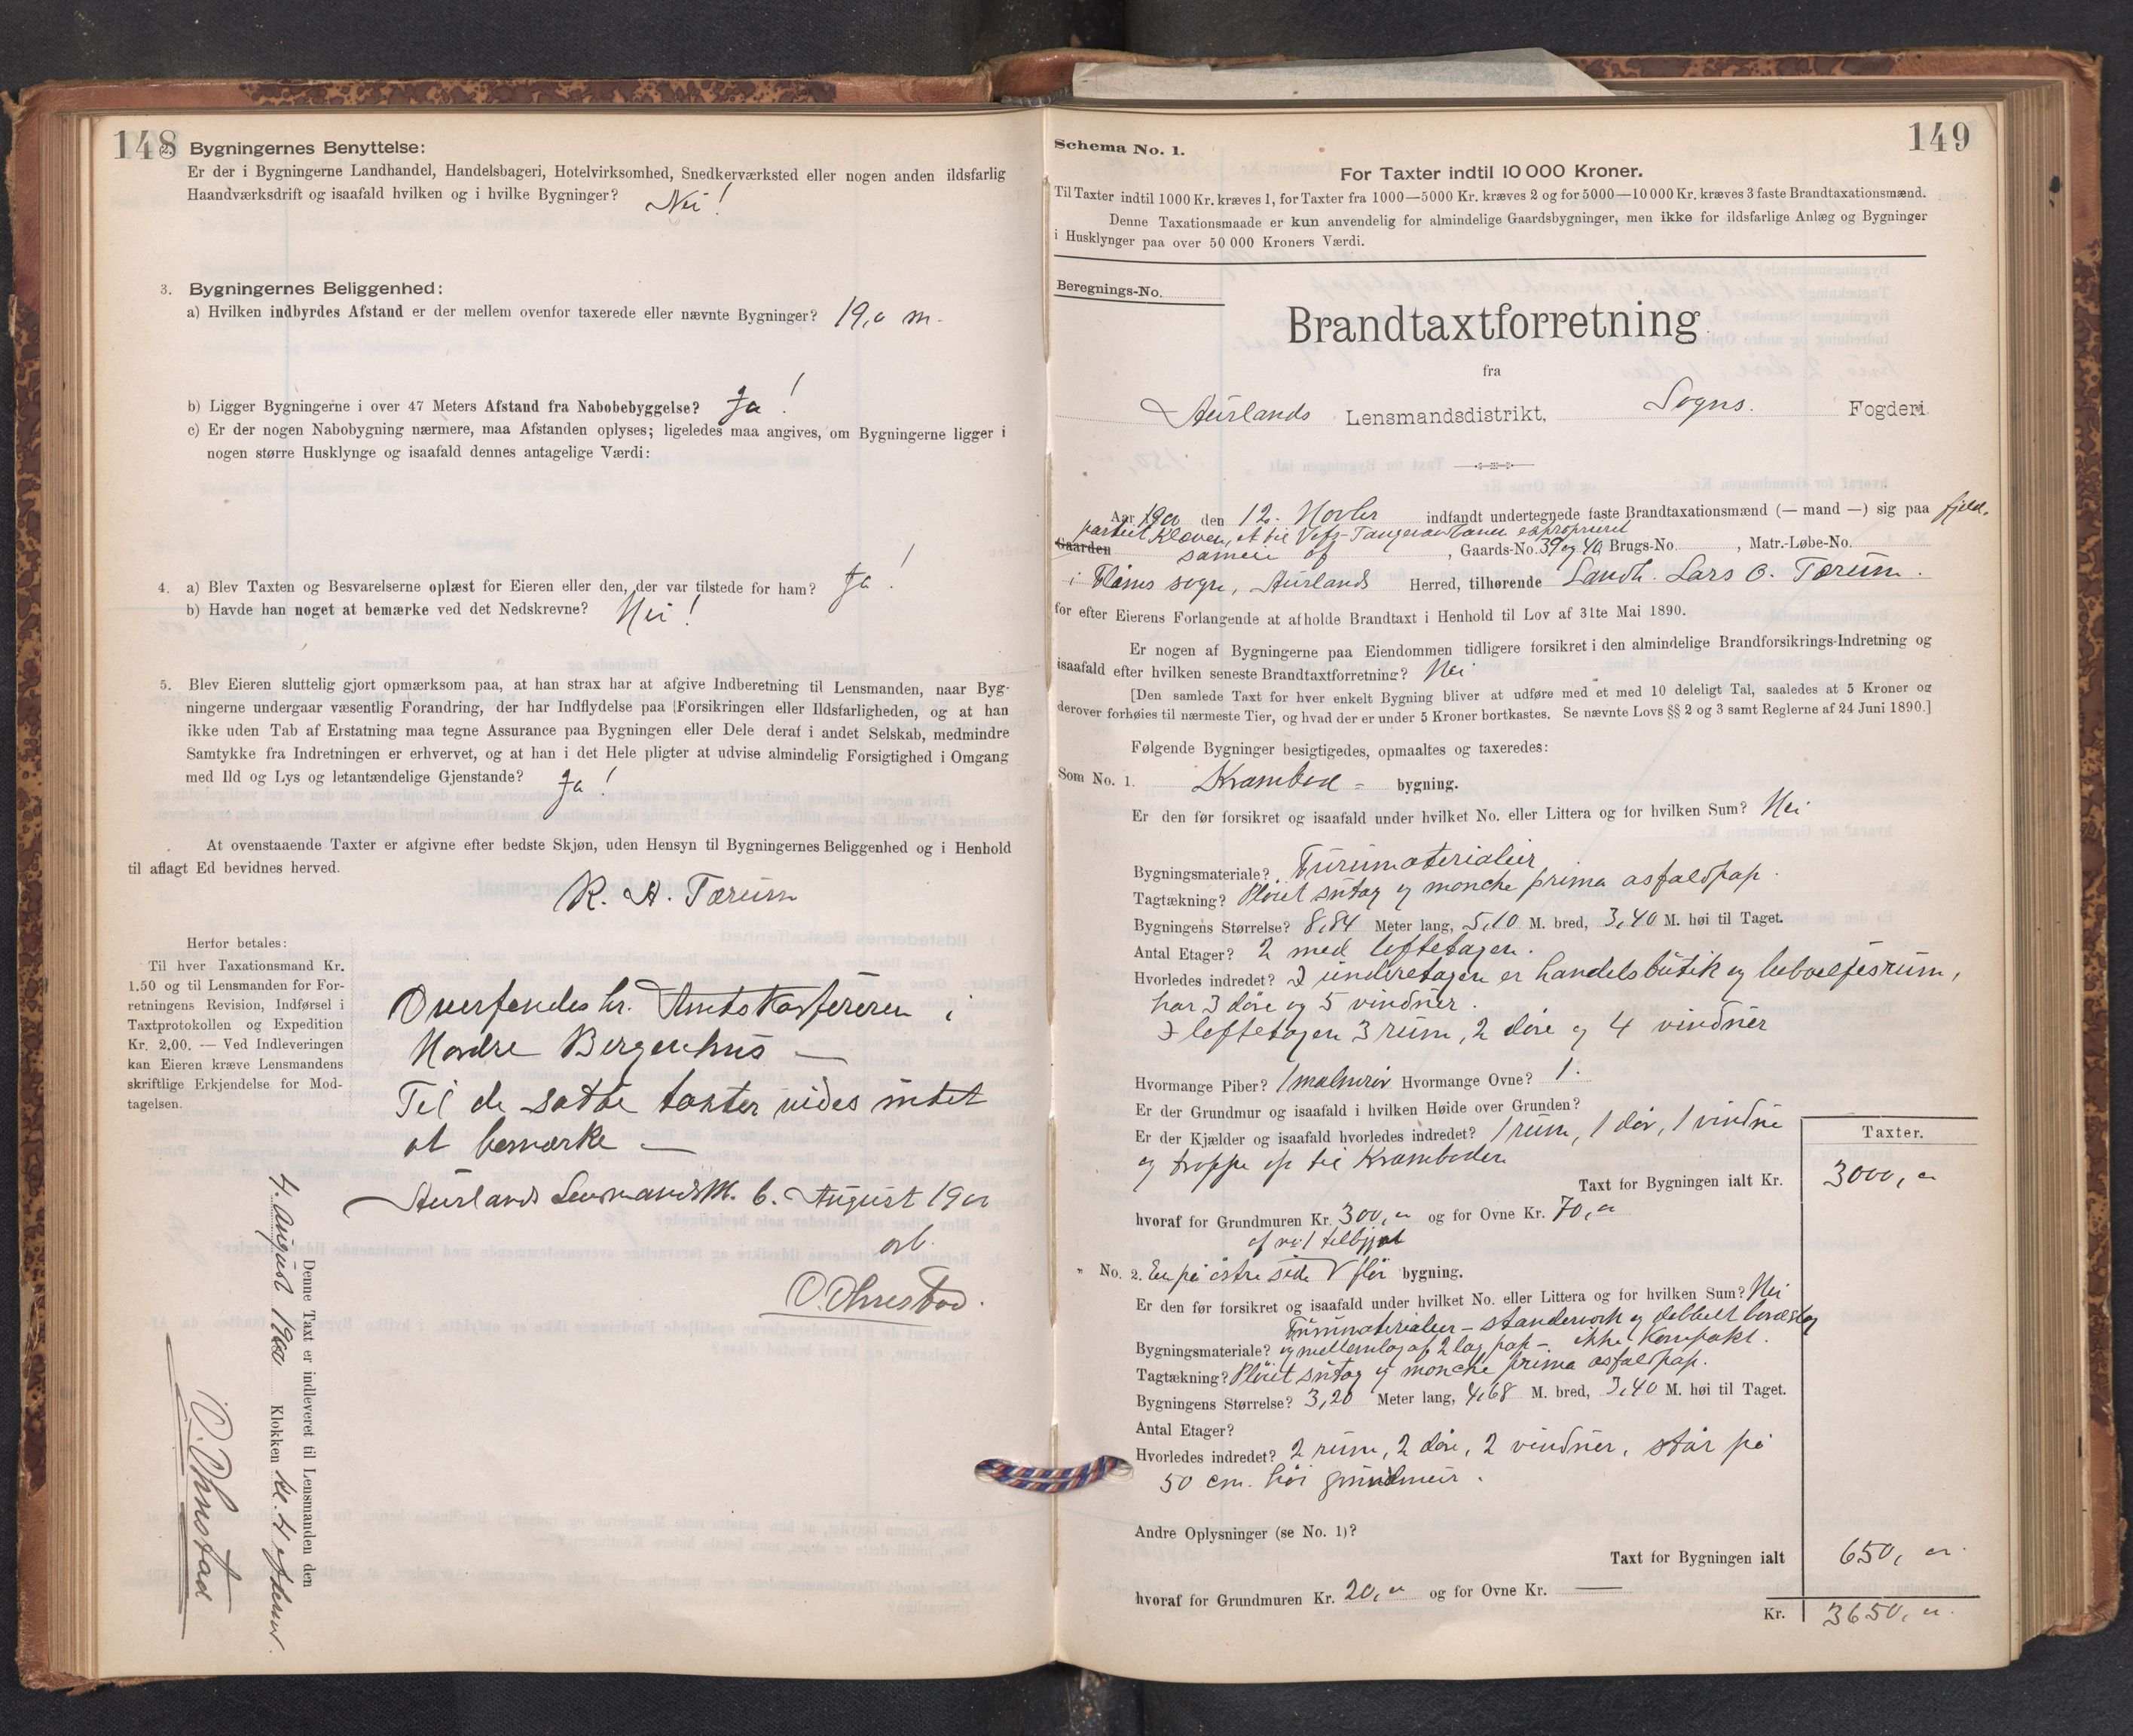 148
2. Bygningernes Benyttelse:
Er der i Bygningerne Landhandel, Handelsbageri, Hotelvirksomhed, Snedkerværksted eller nogen anden ildsfarlig
Haandværksdrift og isaafald hvilken og i hvilke Bygninger? Nei!
3. Bygningernes Beliggenhed:
a) Hvilken indbyrdes Afstand er der mellem ovenfor taxerede eller nævnte Bygninger? 19,0 m.
b) Ligger Bygningerne i over 47 Meters Afstand fra Nabobebyggelse? Ja!
c) Er der nogen Nabobygning nærmere, maa Afstanden oplyses; ligeledes maa angives, om Bygningerne ligger i
nogen større Husklynge og isaafald dennes antagelige Værdi:
4. a) Blev Taxten og Besvarelserne oplæst for Eieren eller den, der var tilstede for ham? Ja!
b) Havde han noget at bemærke ved det Nedskrevne? Nei!
5. Blev Eieren sluttelig gjort opmærksom paa, at han strax har at afgive Indberetning til Lensmanden, naar Byg-
ningerne undergaar væsentlig Forandring, der har Indflydelse paa Forsikringen eller Ildsfarligheden, og at han
ikke uden Tab af Erstatning maa tegne Assurance paa Bygningen eller Dele deraf i andet Selskab, medmindre
Samtykke fra Indretningen er erhvervet, og at han i det Hele pligter at udvise almindelig Forsigtighed i Omgang
med Ild og Lys og letantændelige Gjenstande? Ja!
At ovenstaaende Taxter er afgivne efter bedste Skjøn, uden Hensyn til Bygningernes Beliggenhed og i Henhold
til aflagt Ed bevidnes herved.
R. A. Tærum
Herfor betales:
Til hver Taxationsmand Kr.
1.50 og til Lensmanden for For-
retningens Revision, Indførsel i
Taxtprotokollen og Expedition
Kr. 2.00. — Ved Indleveringen
kan Eieren kræve Lensmandens
skriftlige Erkjendelse for Mod-
tagelsen.
Oversendes hr. Amtskassereren i
Nordre Bergenhus —
Til de satte taxter vides intet
at bemærke —
Aurlands Lensmands 6. August 1900
O. Ohnstad.
Denne Taxt er indleveret til Lensmanden den
4. August 1900 Klokken kl. 4 efterm.
O. Ohnstad
149
Schema No. 1.
For Taxter indtil 10 000 Kroner.
Til Taxter indtil 1000 Kr. kræves 1, for Taxter fra 1000—5000 Kr. kræves 2 og for 5000—10 000 Kr. kræves 3 faste Brandtaxationsmænd.
Denne Taxationsmaade er kun anvendelig for almindelige Gaardsbygninger, men ikke for ildsfarlige Anlæg og Bygninger
i Husklynger paa over 50 000 Kroners Værdi.
Beregnings-No.
Brandtaxtforretning
fra
Aurlands Lensmandsdistrikt, Sogns. Fogderi.
Aar 1900 den 12. Novbr indfandt undertegnede faste Brandtaxationsmænd (— mand —) sig paa fjeld-
partiet Kleven, et til exproprieret
Gaarden sameie af , Gaards-No. 39 og 40 Brugs-No. , Matr.-Løbe-No.
i Flåms sogn, Aurlands Herred, tilhørende Landh. Lars O. Tærum.
for efter Eierens Forlangende at afholde Brandtaxt i Henhold til Lov af 31te Mai 1890.
Er nogen af Bygningerne paa Eiendommen tidligere forsikret i den almindelige Brandforsikrings-Indretning og
isaafald efter hvilken seneste Brandtaxtforretning? Nei
[Den samlede Taxt for hver enkelt Bygning bliver at udføre med et med 10 deleligt Tal, saaledes at 5 Kroner og
derover forhøies til nærmeste Tier, og hvad der er under 5 Kroner bortkastes. Se nævnte Lovs §§ 2 og 3 samt Reglerne af 24 Juni 1890.]
Følgende Bygninger besigtigedes, opmaaltes og taxeredes:
Som No. 1. Krambod- bygning.
Er den før forsikret og isaafald under hvilket No. eller Littera og for hvilken Sum? Nei
Bygningsmateriale? Furumaterialier
Tagtækning? Pløiet sutag og monche prima asfaldpap.
Bygningens Størrelse? 8,84 Meter lang, 5,10 M. bred, 3,40 M. høi til Taget.
Antal Etager? 2 med loftetagen.
Hvorledes indredet? I underetagen er handelsbutik og beboelsesrum,
har 3 døre og 5 vinduer.
I loftetagen 3 rum, 2 døre og 4 vinduer
Hvormange Piber? 1 Hvormange Ovne? 1.
Er der Grundmur og isaafald i hvilken Høide over Grunden?
Er der Kjælder og isaafald hvorledes indredet? 1 rum, 1 dør, 1 vindue
og troppe op til Kramboden
Taxter.
Taxt for Bygningen ialt Kr. 3000,00
hvoraf for Grundmuren Kr. 300,00 og for Ovne Kr. 70,00
af no: 1 tilbygt
" No. 2. En på østre side flør bygning.
Er den før forsikret og isaafald under hvilket No. eller Littera og for hvilken Sum? Nei
Furumaterialier – standerverk og dobbelt bordslag
Bygningsmateriale? og mellemlag af 2 lag pap – ikke kompakt.
Tagtækning? Pløiet sutag og monche prima asfaldpap.
Bygningens Størrelse? 3,20 Meter lang, 4,68 M. bred, 3,40 M. høi til Taget.
Antal Etager?
Hvorledes indredet? 2 rum, 2 døre, 2 vinduer, står på
50 cm. høi grundmur.
Andre Oplysninger (se No. 1)?
Taxt for Bygningen ialt 650,00
hvoraf for Grundmuren Kr. 20,00 og for Ovne Kr. —
Kr. 3650,00